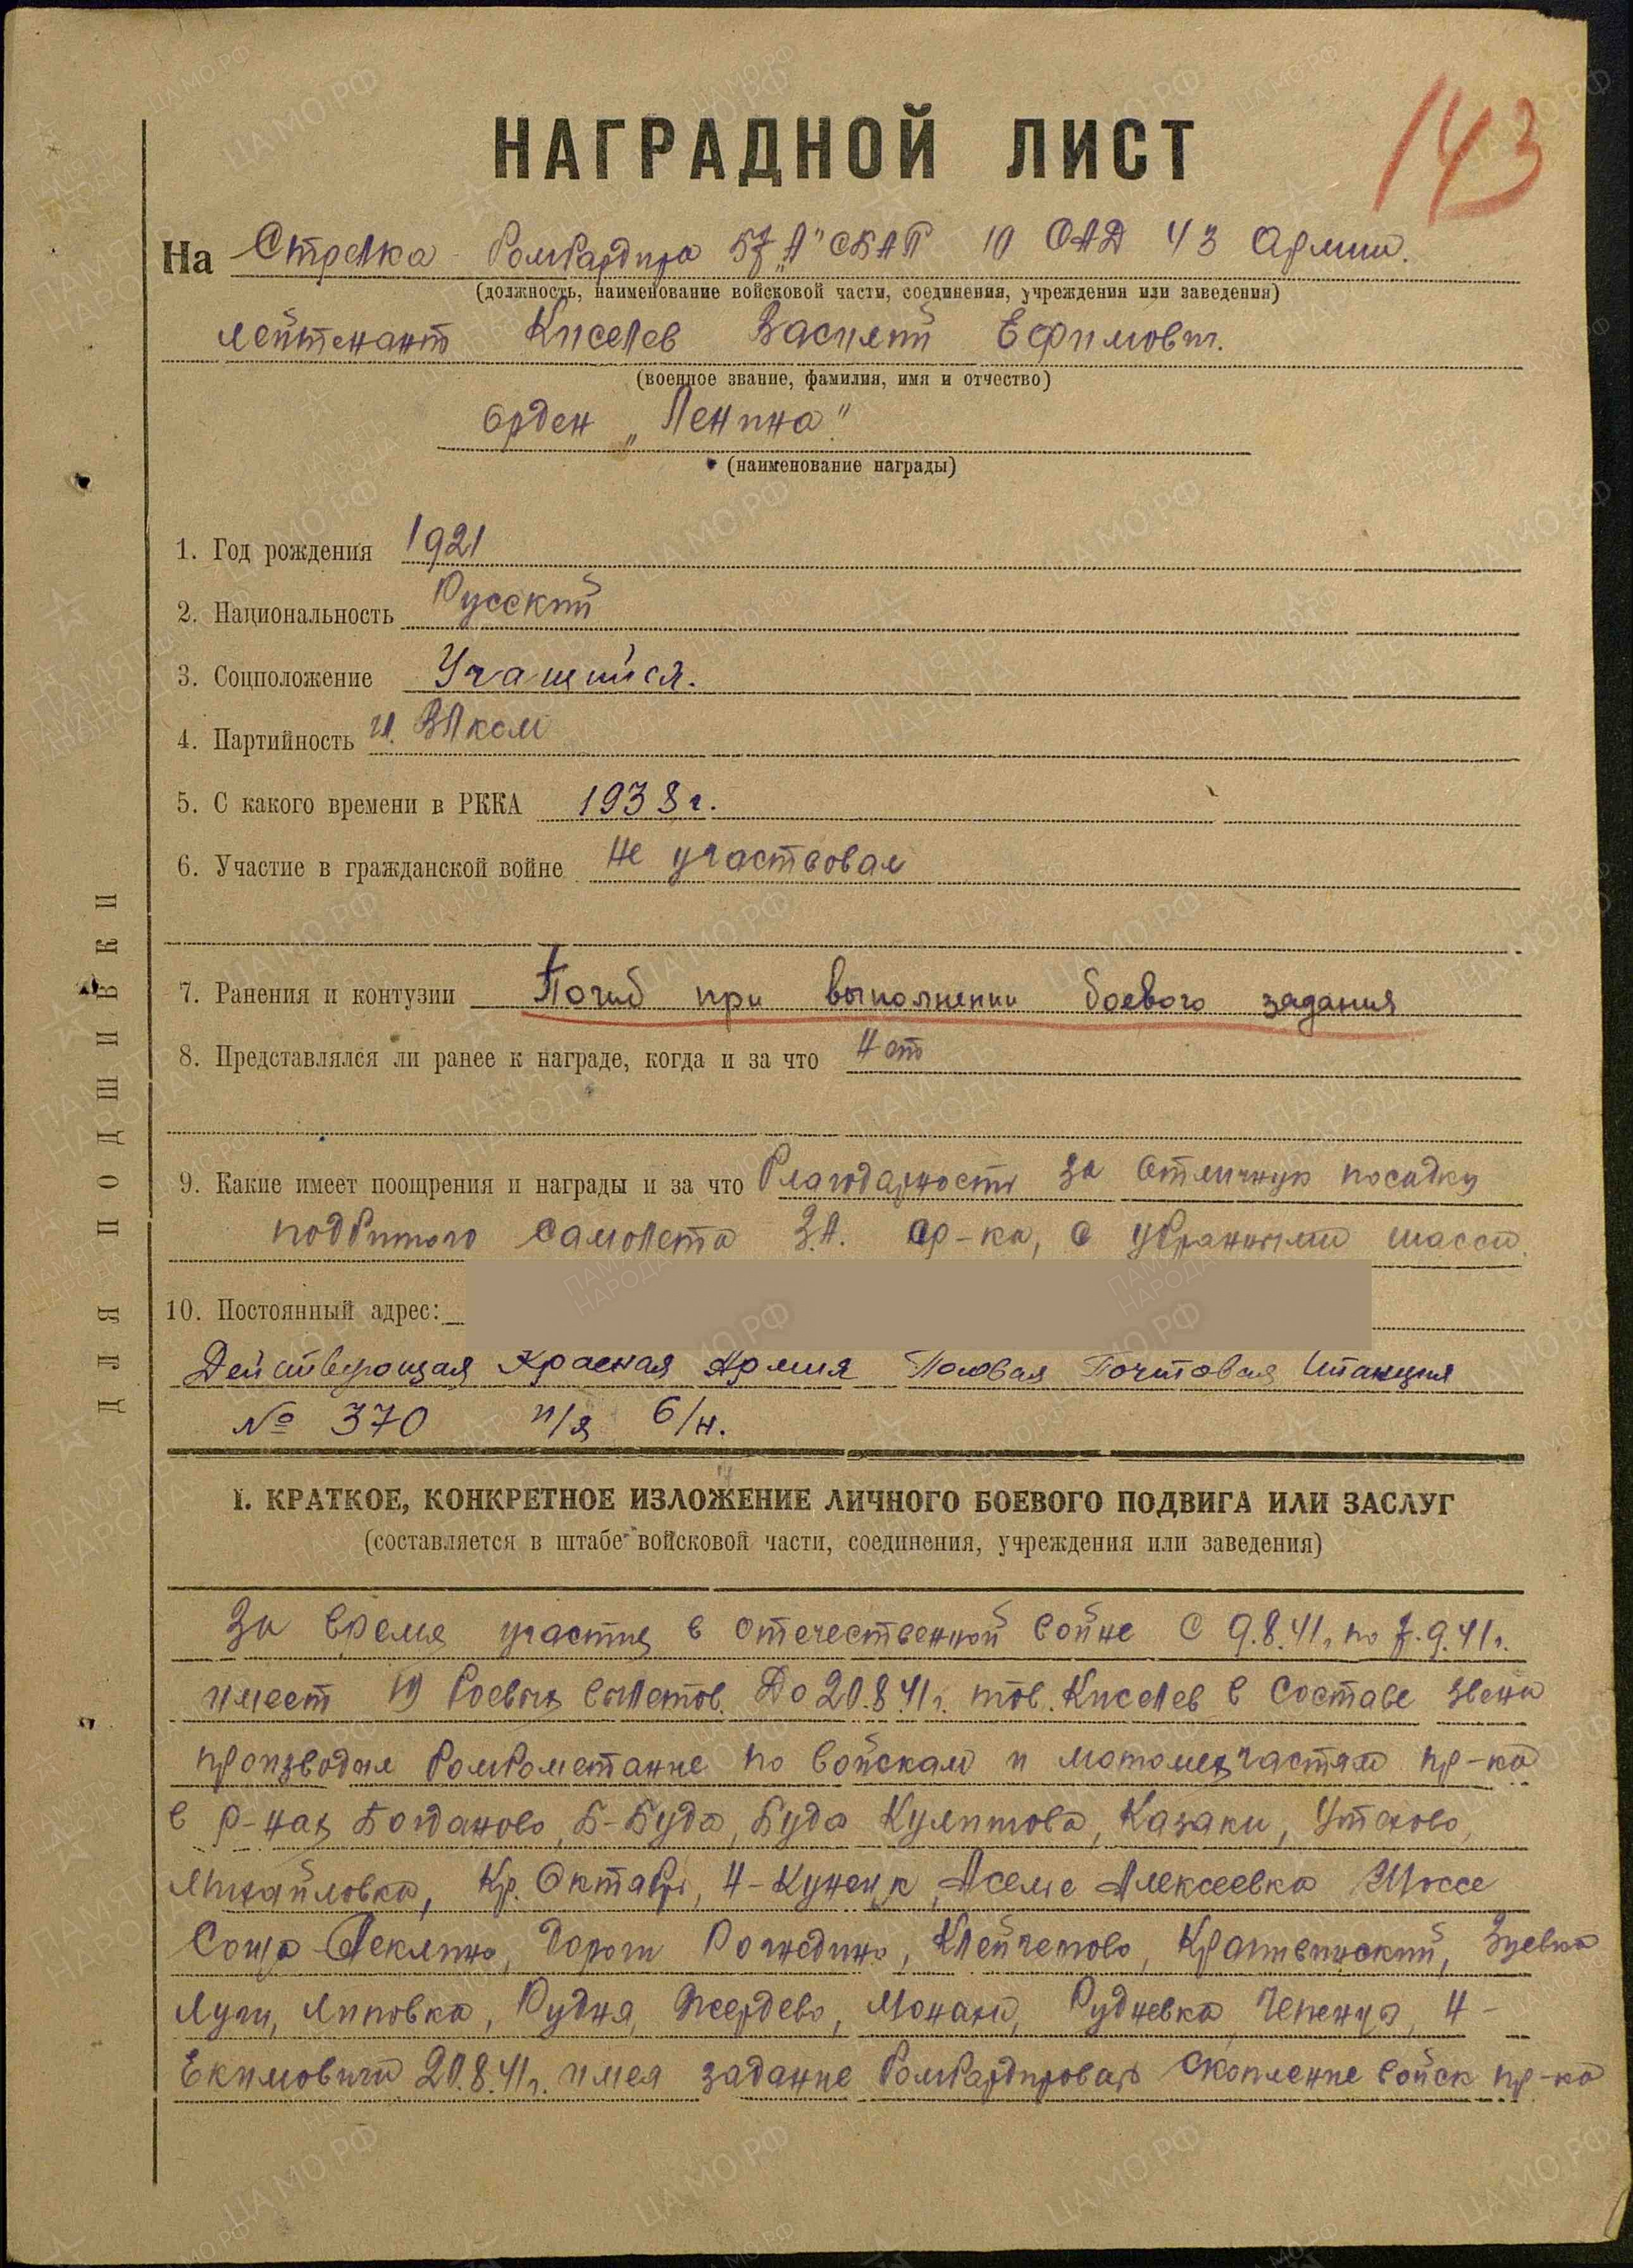 143
НАГРАДНОЙ ЛИСТ
На Стрелка Бомбардира 57 „А" СБАП 10 ОАД 43 Армии.
(должность, наименование войсковой части, соединения, учреждения или заведения)
лейтенант Киселев Василий Ефимович.
(военное звание, фамилия, имя и отчество)
орден „Ленина"
(наименование награды)
1. Год рождения 1921
2. Национальность Русский
3. Соцположение Учащийся.
4. Партийность чл. ВЛКСМ
5. С какого времени в РККА 1938 г.
6. Участие в гражданской войне Не участвовал
7. Ранения и контузии Погиб при выполнении боевого задания
8. Представлялся ли ранее к награде, когда и за что Нет
9. Какие имеет поощрения и награды и за что Благодарность за отличную посадку
подбитого самолета З.А. пр-ка, с убранными шасси.
10. Постоянный адрес:
Действующая Красная Армия Полевая Почтовая Станция
№ 370 п/я б/н.
I. КРАТКОЕ, КОНКРЕТНОЕ ИЗЛОЖЕНИЕ ЛИЧНОГО БОЕВОГО ПОДВИГА ИЛИ ЗАСЛУГ
(составляется в штабе войсковой части, соединения, учреждения или заведения)
За время участия в отечественной войне с 9.8.41г. по 7.9.41г.
имеет 10 боевых вылетов. До 20.8.41г. тов. Киселев в составе звена
производил бомбометание по войскам и мотомехчастям пр-ка
в р-нах Богданово, Б-Буда, Буда Кулитова, Казаки, Утехово,
Михайловка, Кр. Октябрь, Н-Кузнецк, Алексеевка Шоссе
Соща Пеклино, дороги Рогнедино, Клейчетово, Кративинский, Зуевка
Луги, Липовка, Рудня, Жердево, Монахи, Рудневка, Чепенца, Н-
Екимовичи 20.8.41г. имея задание бомбардировать скопление войск пр-ка
ДЛЯ ПОДШИВКИ
ПАМЯТЬ НАРОДА
ЦА МО РФ